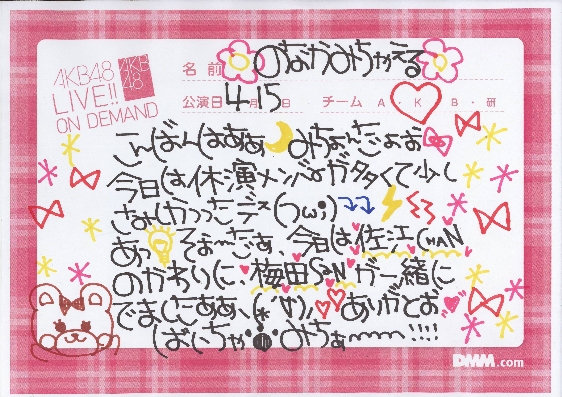 AKB48
LIVE!!
ON DEMAND
AKB
48
名 前 のなかみちゃえる
公演日 4月15日 チーム A・K・B・研
こんばんはぁぁぁ みちょんだょぉ
今日は休演メンバーが多くて少し
さみしかったデス(つω;)
あっ そぉーだぁ 今日は佐江CHAN
のかわりに、梅田SaNが一緒に
でましたぁぁ、(*´∀`)、ありがとぉ
ばいちゃ みちぁ〜〜!!!!
DMM.com